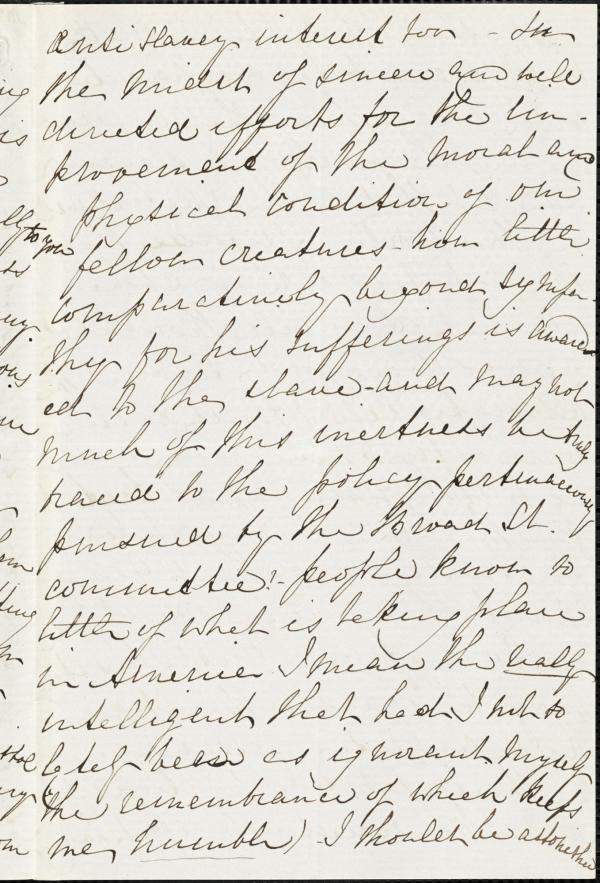 antislavery interest too - In
the midst of sincere and well
directed efforts for the im-
provement of the moral and
physical condition of our
fellow creatures - how little
comparatively beyond sympa-
thy for his sufferings is award-
ed to the slave - and may not
much of this inertness be truly
traced to the policy pertinaciously
pursued by the Broad St.
committee? - people know so
little of what is taking place
in America I mean the really
intelligent that had I not so
lately been as ignorant myself
(the remembrance of which keeps
me humble) I should be astonished
to you